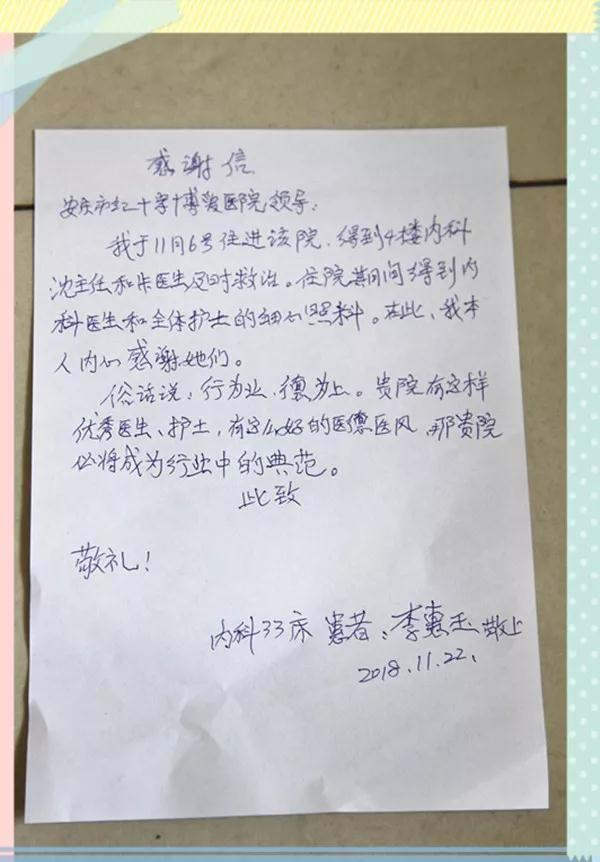 感谢信
安庆市红十字博爱医院领导：
我于11月6号住进该院，得到4楼内科
沈主任和朱医生及时救治。住院期间得到内
科医生和全体护士的细心照料。在此，我本
人内心感谢她们。
俗话说：行为业，德为上。贵院有这样
优秀医生、护士，有这么好的医德医风，那贵院
必将成为行业中的典范。
此致
敬礼！
内科33床 患者：李惠玉敬上
2018.11.22.